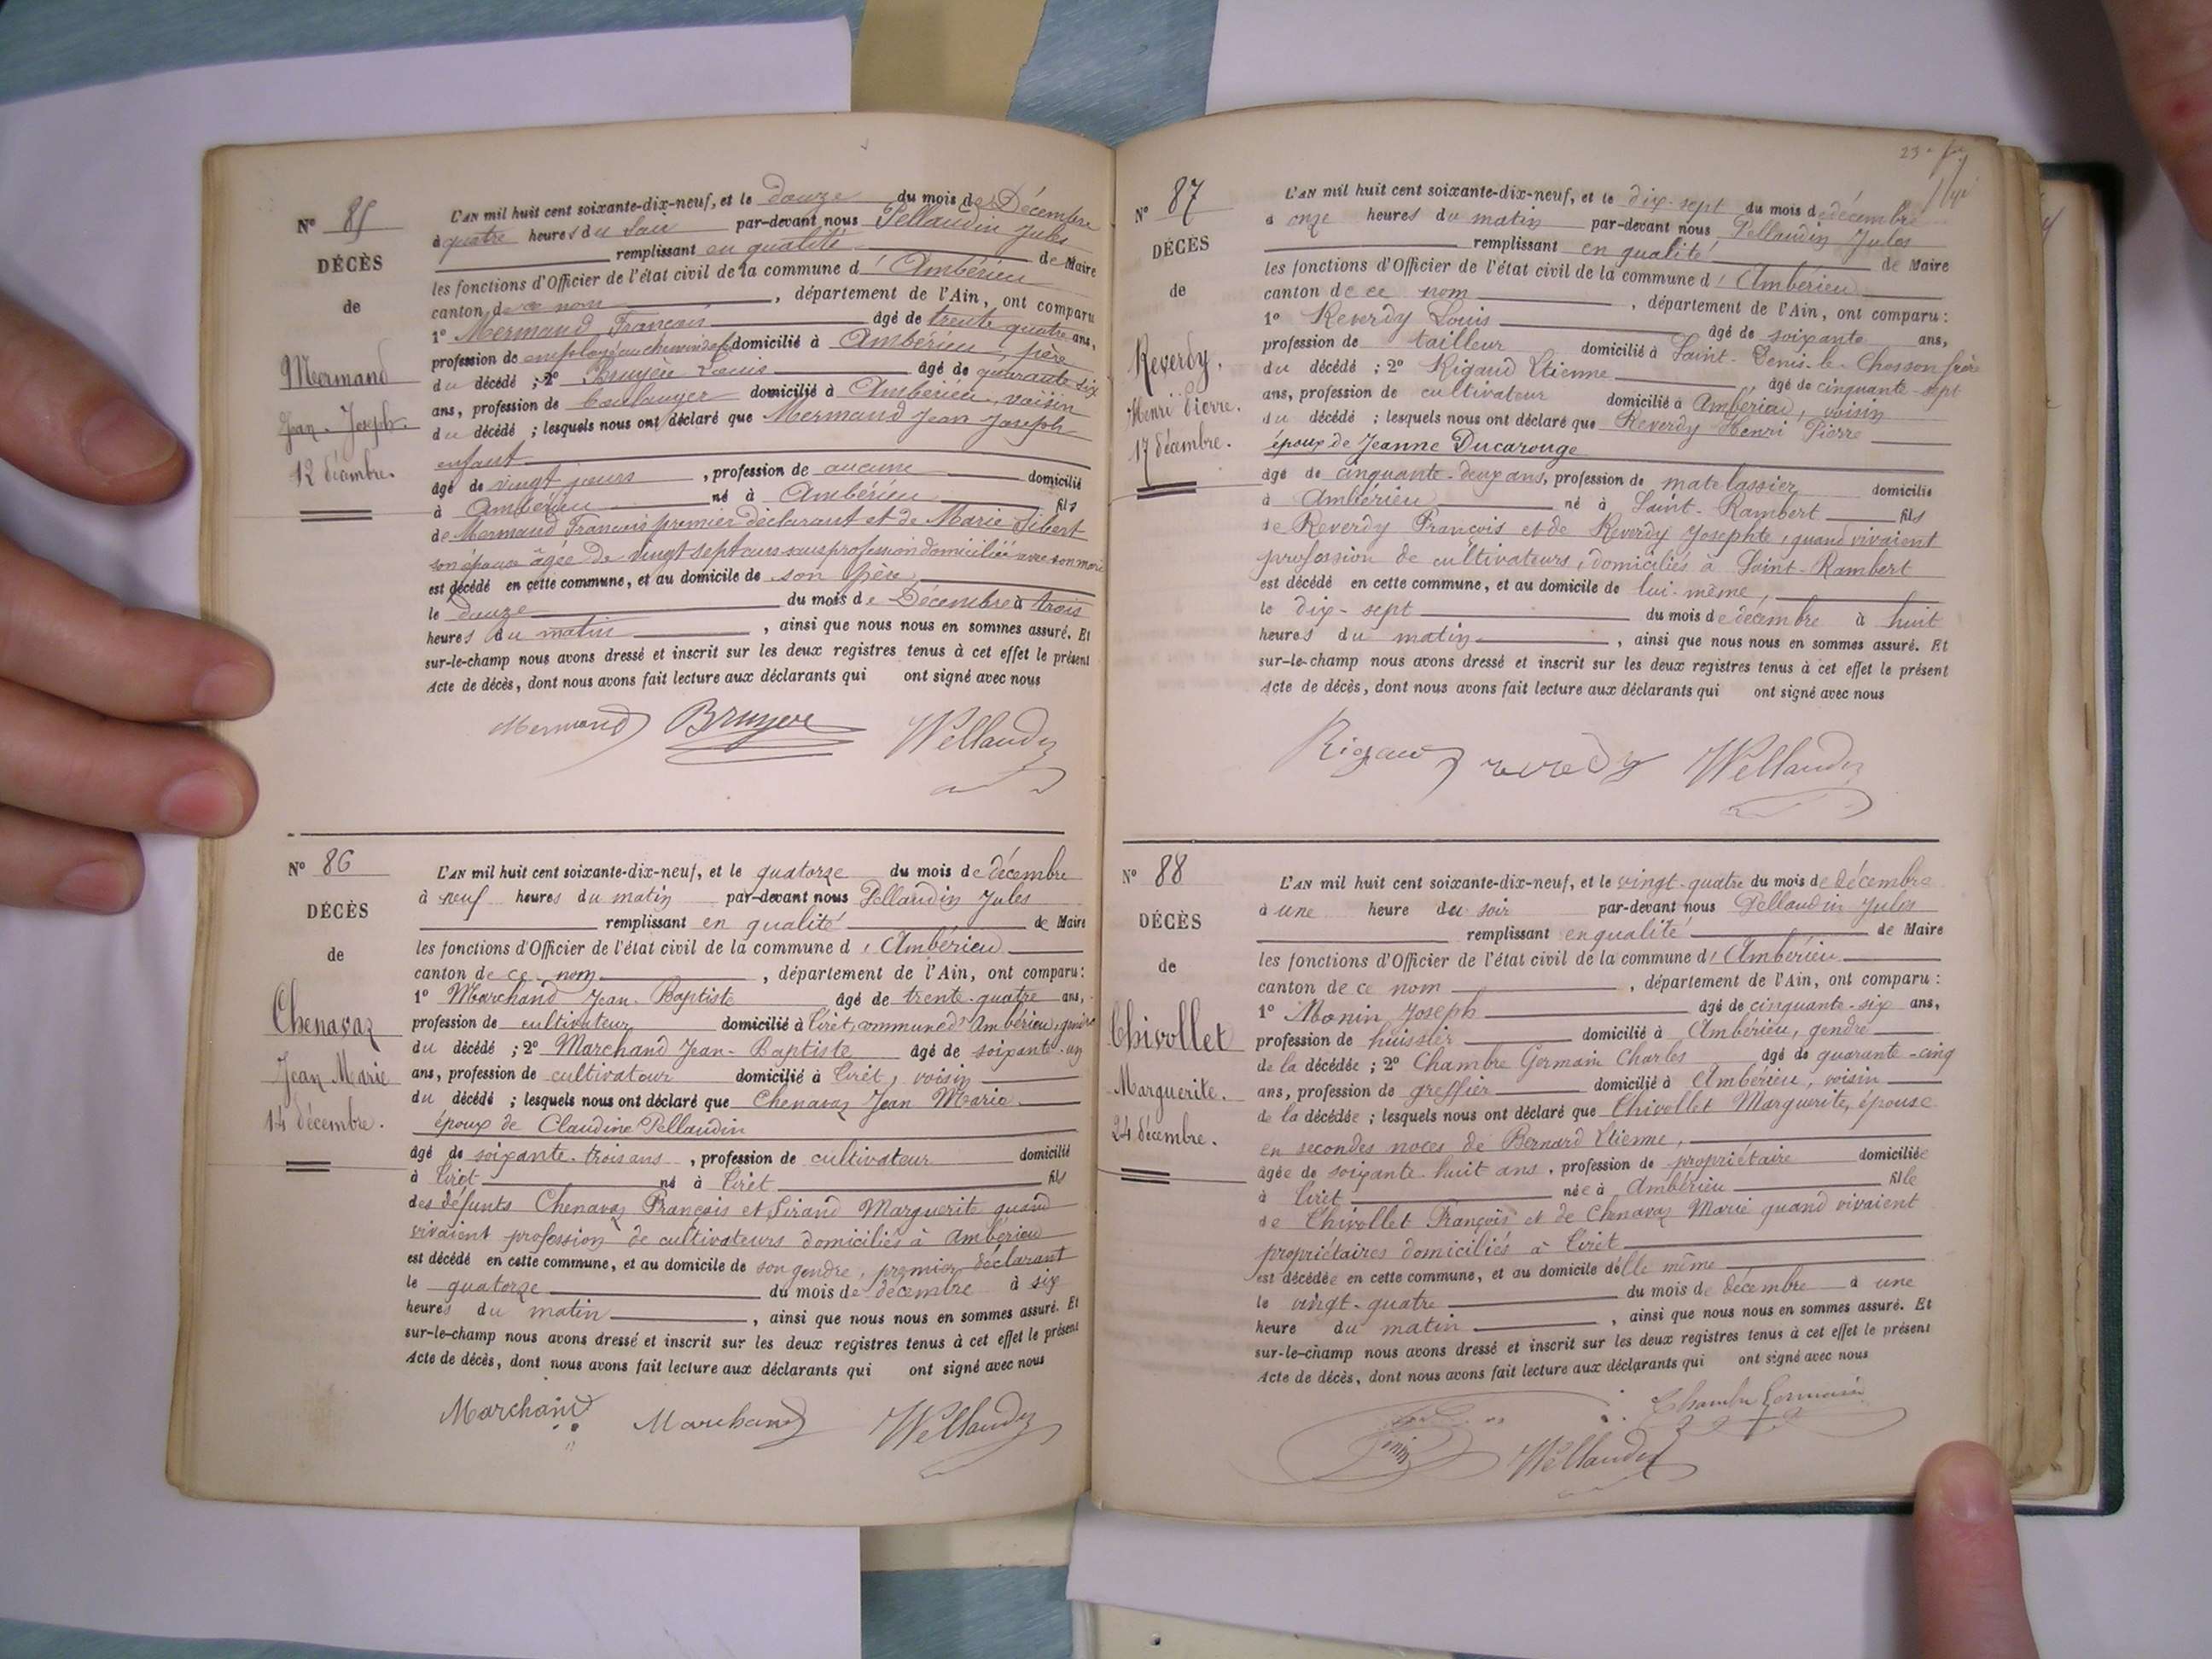 Nº 85
DÉCÈS
de
Mermand
Jean-Joseph.
12 décembre.
L'AN mil huit cent soixante-dix-neuf, et le douze du mois de Décembre
à quatre heures du soir par-devant nous Pellaudin Jules
remplissant en qualité de Maire
les fonctions d'Officier de l'état civil de la commune d'Ambérieu
canton de ce nom, département de l'Ain, ont comparu
1º Mermand François âgé de trente quatre ans,
profession de employé au chemin de fer domicilié à Ambérieu, père
du décédé ; 2º Bruyère Louis âgé de quarante six
ans, profession de boulanger domicilié à Ambérieu, voisin
du décédé ; lesquels nous ont déclaré que Mermand Jean Joseph
enfant
âgé de vingt jours, profession de aucune domicilié
à Ambérieu né à Ambérieu fils
de Mermand François premier déclarant et de Marie Sibert
son épouse âgée de vingt sept ans sans profession domiciliée avec son mari
est décédé en cette commune, et au domicile de son père
le douze du mois de Décembre à trois
heures du matin, ainsi que nous nous en sommes assuré. Et
sur-le-champ nous avons dressé et inscrit sur les deux registres tenus à cet effet le présent
Acte de décès, dont nous avons fait lecture aux déclarants qui ont signé avec nous
Mermand Bruyere Pellaudin
Nº 86
DÉCÈS
de
Chenavaz
Jean Marie
14 décembre.
L'AN mil huit cent soixante-dix-neuf, et le quatorze du mois de décembre
à neuf heures du matin par-devant nous Pellaudin Jules
remplissant en qualité de Maire
les fonctions d'Officier de l'état civil de la commune d'Ambérieu
canton de ce nom, département de l'Ain, ont comparu :
1º Marchand Jean-Baptiste âgé de trente-quatre ans,
profession de cultivateur domicilié à Tiret, commune d'Ambérieu, gendre
du décédé ; 2º Marchand Jean-Baptiste âgé de soixante-un
ans, profession de cultivateur domicilié à Tiret, voisin
du décédé ; lesquels nous ont déclaré que Chenavaz Jean Marie
époux de Claudine Pellaudin
âgé de soixante-trois ans, profession de cultivateur domicilié
à Tiret né à Tiret fils
des défunts Chenavaz François et Sirand Marguerite quand
vivaient profession de cultivateurs domiciliés à Ambérieu
est décédé en cette commune, et au domicile de son gendre, premier déclarant
le quatorze du mois de décembre à six
heures du matin, ainsi que nous nous en sommes assuré. Et
sur-le-champ nous avons dressé et inscrit sur les deux registres tenus à cet effet le présent
Acte de décès, dont nous avons fait lecture aux déclarants qui ont signé avec nous
Marchand Marchand Pellaudin
23e
Nº 87
DÉCÈS
de
Reverdy,
Henri Pierre.
17 décembre.
L'AN mil huit cent soixante-dix-neuf, et le dix-sept du mois de décembre
à onze heures du matin par-devant nous Pellaudin Jules
remplissant en qualité de Maire
les fonctions d'Officier de l'état civil de la commune d'Ambérieu
canton de ce nom, département de l'Ain, ont comparu :
1º Reverdy Louis âgé de soixante ans,
profession de tailleur domicilié à Saint-Denis-le-Chosson frère
du décédé ; 2º Rigaud Etienne âgé de cinquante-sept
ans, profession de cultivateur domicilié à Ambérieu, voisin
du décédé ; lesquels nous ont déclaré que Reverdy Henri Pierre
époux de Jeanne Ducarouge
âgé de cinquante-deux ans, profession de matelassier domicilié
à Ambérieu né à Saint-Rambert fils
de Reverdy François et de Reverdy Josephte, quand vivaient
profession de cultivateurs, domiciliés à Saint-Rambert
est décédé en cette commune, et au domicile de lui-même,
le dix-sept du mois de décembre à huit
heures du matin, ainsi que nous nous en sommes assuré. Et
sur-le-champ nous avons dressé et inscrit sur les deux registres tenus à cet effet le présent
Acte de décès, dont nous avons fait lecture aux déclarants qui ont signé avec nous
Rigaud reverdy Pellaudin
Nº 88
DÉCÈS
de
Chivollet
Marguerite.
24 décembre.
L'AN mil huit cent soixante-dix-neuf, et le vingt-quatre du mois de décembre
à une heure du soir par-devant nous Pellaudin Jules
remplissant en qualité de Maire
les fonctions d'Officier de l'état civil de la commune d'Ambérieu
canton de ce nom, département de l'Ain, ont comparu :
1º Monin Joseph âgé de cinquante-six ans,
profession de huissier domicilié à Ambérieu, gendre
de la décédée ; 2º Chambre Germain Charles âgé de quarante-cinq
ans, profession de greffier domicilié à Ambérieu, voisin
de la décédée ; lesquels nous ont déclaré que Chivollet Marguerite, épouse
en secondes noces de Bernard Etienne,
âgée de soixante-huit ans, profession de propriétaire domiciliée
à Tiret née à Ambérieu fille
de Chivollet François et de Chenavaz Marie quand vivaient
propriétaires domiciliés à Tiret
est décédée en cette commune, et au domicile d'elle même
le vingt-quatre du mois de décembre à une
heure du matin, ainsi que nous nous en sommes assuré. Et
sur-le-champ nous avons dressé et inscrit sur les deux registres tenus à cet effet le présent
Acte de décès, dont nous avons fait lecture aux déclarants qui ont signé avec nous
Chambre Germain
Pellaudin